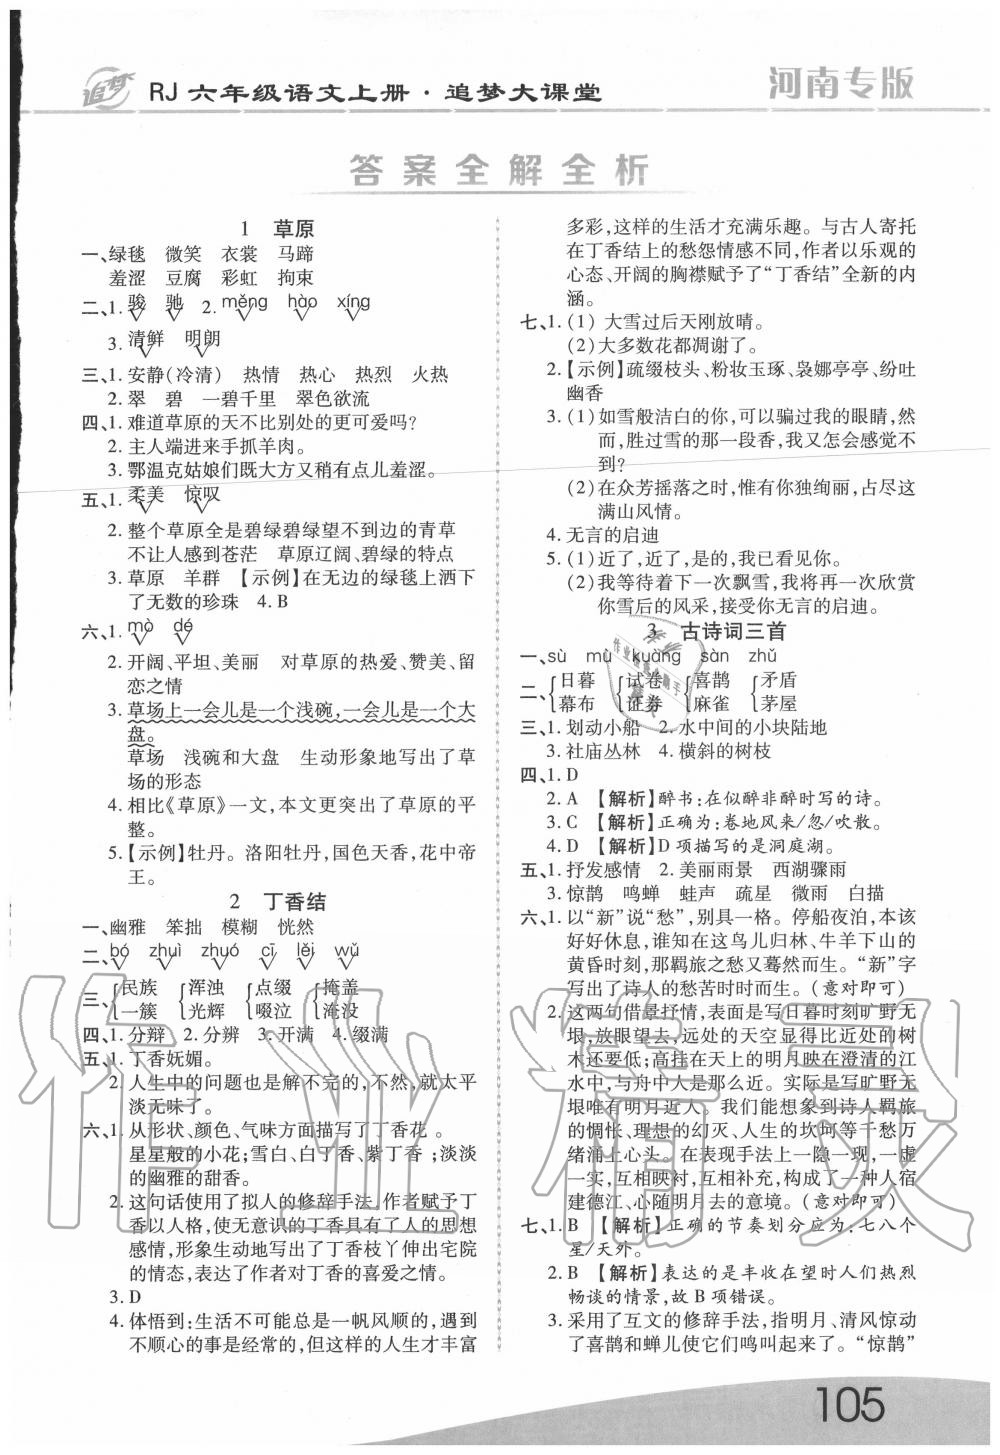 追梦 RJ 六年级语文上册·追梦大课堂 河南专版
答案全解全析
1 草原
一、绿毯 微笑 衣裳 马蹄
羞涩 豆腐 彩虹 拘束
二、1. 骏 驰 2. měng hào xíng
3. 清鲜 明朗
三、1. 安静(冷清) 热情 热心 热烈 火热
2. 翠 碧 一碧千里 翠色欲流
四、1. 难道草原的天不比别处的更可爱吗?
2. 主人端进来手抓羊肉。
3. 鄂温克姑娘们既大方又稍有点儿羞涩。
五、1. 柔美 惊叹
2. 整个草原全是碧绿碧绿望不到边的青草
不让人感到苍茫 草原辽阔、碧绿的特点
3. 草原 羊群 【示例】在无边的绿毯上洒下
了无数的珍珠 4. B
六、1. mò dé
2. 开阔、平坦、美丽 对草原的热爱、赞美、留
恋之情
3. 草场上一会儿是一个浅碗,一会儿是一个大
盘。
草场 浅碗和大盘 生动形象地写出了草
场的形态
4. 相比《草原》一文,本文更突出了草原的平
整。
5. 【示例】牡丹。洛阳牡丹,国色天香,花中帝
王。
2 丁香结
一、幽雅 笨拙 模糊 恍然
二、bó zhuì zhuó cī lěi wǔ
三、{民族 {浑浊 {点缀 {掩盖
{一簇 {光辉 {啜泣 {淹没
四、1. 分辩 2. 分辨 3. 开满 4. 缀满
五、1. 丁香妩媚。
2. 人生中的问题也是解不完的,不然,就太平
淡无味了。
六、1. 从形状、颜色、气味方面描写了丁香花 。
星星般的小花;雪白、白丁香、紫丁香;淡淡
的幽雅的甜香。
2. 这句话使用了拟人的修辞手法,作者赋予丁
香以人格,使无意识的丁香具有了人的思想
感情,形象生动地写出了丁香枝丫伸出宅院
的情态,表达了作者对丁香的喜爱之情。
3. D
4. 体悟到:生活不可能总是一帆风顺的,遇到
不顺心的事是经常的,但这样的人生才丰富
多彩,这样的生活才充满乐趣。与古人寄托
在丁香结上的愁怨情感不同,作者以乐观的
心态、开阔的胸襟赋予了“丁香结”全新的内
涵。
七、1. (1) 大雪过后天刚放晴。
(2) 大多数花都凋谢了。
2. 【示例】疏缀枝头、粉妆玉琢、袅娜亭亭、纷吐
幽香
3. (1) 如雪般洁白的你,可以骗过我的眼睛,然
而,胜过雪的那一段香,我又怎会感觉不
到?
(2) 在众芳摇落之时,惟有你独绚丽,占尽这
满山风情。
4. 无言的启迪
5. (1) 近了,近了,是的,我已看见你。
(2) 我等待着下一次飘雪,我将再一次欣赏
你雪后的风采,接受你无言的启迪。
3 古诗词三首
一、sù mù kuàng sàn zhǔ
二、{日暮 {试卷 {喜鹊 {矛盾
{幕布 {证券 {麻雀 {茅屋
三、1. 划动小船 2. 水中间的小块陆地
3. 社庙丛林 4. 横斜的树枝
四、1. D
2. A 【解析】醉书:在似醉非醉时写的诗。
3. C 【解析】正确为:卷地风来/忽/吹散。
4. D 【解析】D 项描写的是洞庭湖。
五、1. 抒发感情 2. 美丽雨景 西湖骤雨
3. 惊鹊 鸣蝉 蛙声 疏星 微雨 白描
六、1. 以“新”说“愁”,别具一格。停船夜泊,本该
好好休息,谁知在这鸟儿归林、牛羊下山的
黄昏时刻,那羁旅之愁又蓦然而生。“新”字
写出了诗人的愁苦时时而生。(意对即可)
2. 这两句借景抒情,表面是写日暮时刻旷野无
垠,放眼望去,远处的天空显得比近处的树
木还要低;高挂在天上的明月映在澄清的江
水中,与舟中人是那么近。实际是写旷野无
垠唯有明月近人。我们能想象到诗人羁旅
的惆怅、理想的幻灭、人生的坎坷等千愁万
绪涌上心头。在表现手法上一隐一现,一虚
一实,互相映衬,互相补充,构成了一种人宿
建德江、心随明月去的意境。(意对即可)
七、1. B 【解析】正确的节奏划分应为:七八个
星/天外。
2. B 【解析】表达的是丰收在望时人们热烈
畅谈的情景,故 B 项错误。
3. 采用了互文的修辞手法,指明月、清风惊动
了喜鹊和蝉儿使它们鸣叫起来了。“惊鹊”
105
作业精灵